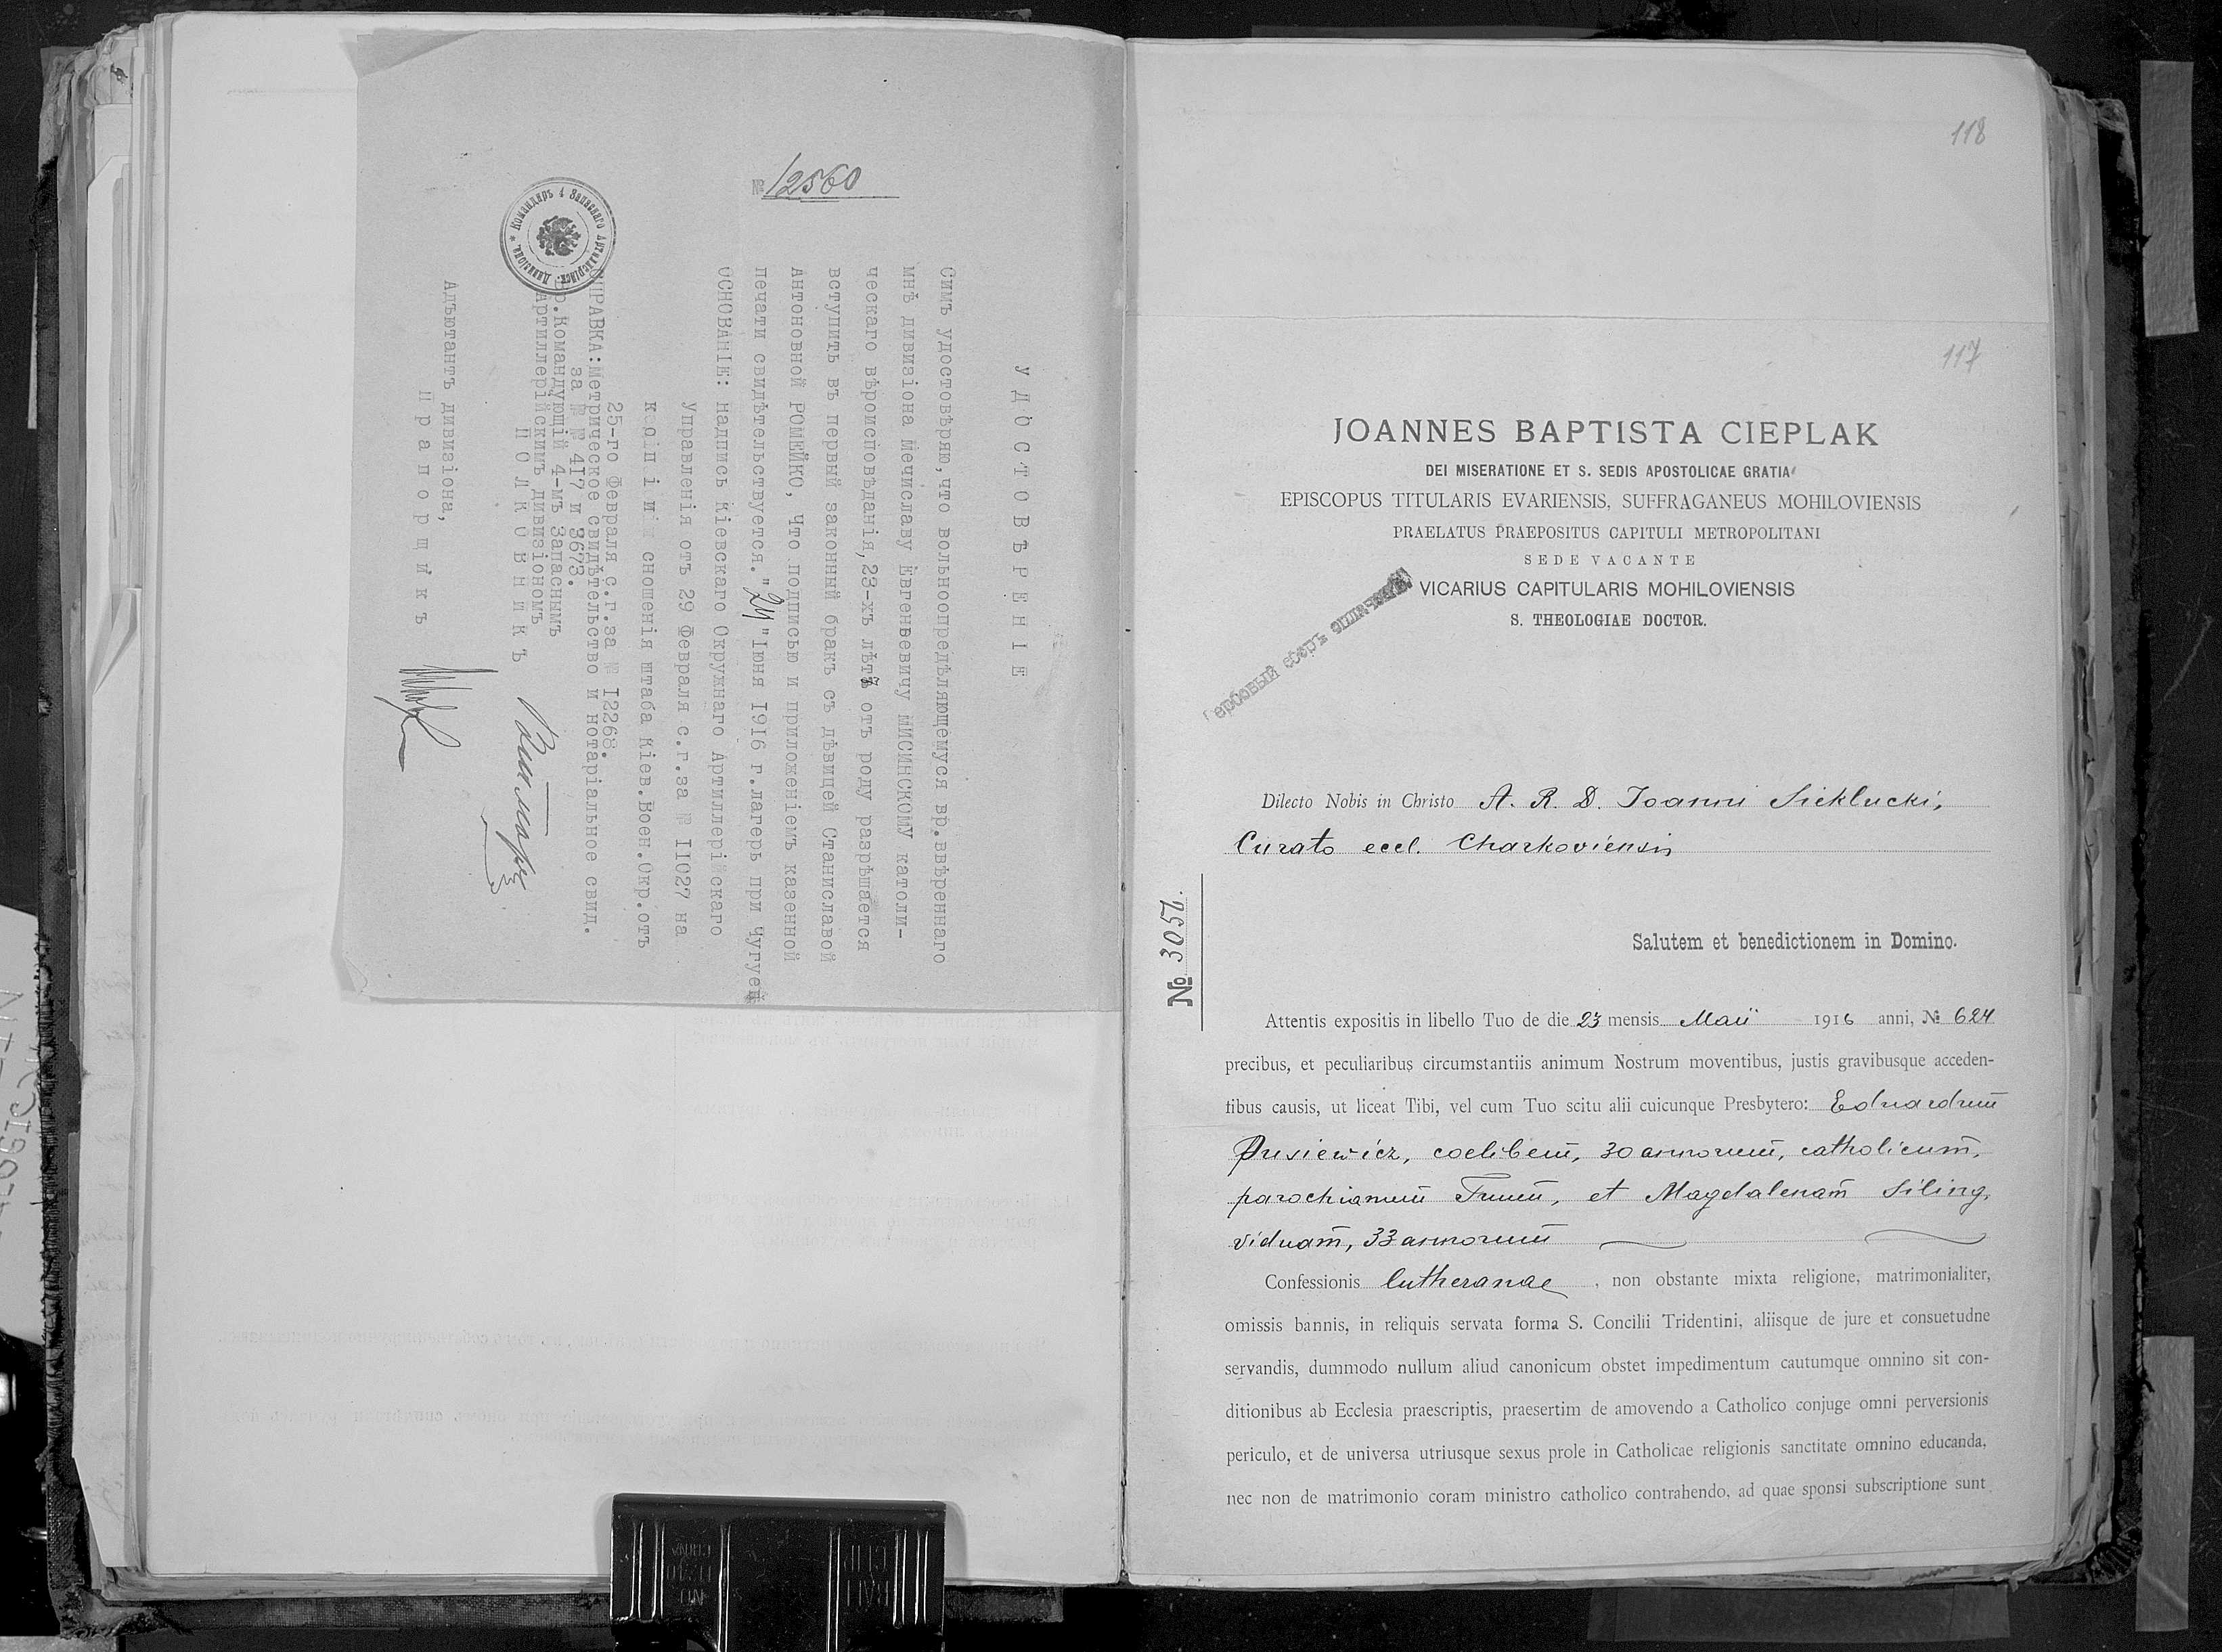 УДОСТОВѢРЕНІЕ
№ 12560
Симъ удостовѣряю,что вольноопредѣляющемуся вр.ввѣреннаго
мнѣ дивизіона Мечиславу Евгеньевичу МИСИНСКОМУ католи-
ческаго вѣроисповѣданія,23-хъ лѣтъ отъ роду разрѣшается
вступить въ первый законный бракъ съ дѣвицей Станиславой
Антоновной РОМЕЙКО, что подписью и приложеніемъ казенной
печати свидѣтельствуется."24"Іюня 1916 г.лагерь при Чугуей
ОСНОВАНІЕ: Надпись Кіевскаго Окружнаго Артиллерійскаго
Управленія отъ 29 Февраля с.г.за № 11027 на
копіи сношенія штаба Кіев.Воен.Окр.отъ
25-го Февраля с.г.за № 12268.
СПРАВКА:Метрическое свидѣтельство и нотаріальное свид.
за № № 417 и 3673.
Вр.Командующій 4-мъ Запаснымъ
Артиллерійскимъ дивизіономъ
ПОЛКОВНИКЪ
Адъютантъ дивизіона,
Прапорщикъ
Командиръ 4 Запаснаго Артиллерійск. Дивизіона. *
118
117
JOANNES BAPTISTA CIEPLAK
DEI MISERATIONE ET S. SEDIS APOSTOLICAE GRATIA
EPISCOPUS TITULARIS EVARIENSIS, SUFFRAGANEUS MOHILOVIENSIS
PRAELATUS PRAEPOSITUS CAPITULI METROPOLITANI
SEDE VACANTE
VICARIUS CAPITULARIS MOHILOVIENSIS
S. THEOLOGIAE DOCTOR.
Гербовый сборъ
Dilecto Nobis in Christo A. R. D. Joanni Sieklucki,
Curato eccl. Charkoviensis
№ 3057.
Salutem et benedictionem in Domino.
Attentis expositis in libello Tuo de die 23 mensis Maii 1916 anni, № 624
precibus, et peculiaribus circumstantiis animum Nostrum moventibus, justis gravibusque acceden-
tibus causis, ut liceat Tibi, vel cum Tuo scitu alii cuicunque Presbytero: Eduardum
Pusiewicz, coelibem, 30 annorum, catholicum,
parochianum Tuum, et Magdalenam Siling,
viduam, 33 annorum
Confessionis lutheranae, non obstante mixta religione, matrimonialiter,
omissis bannis, in reliquis servata forma S. Concilii Tridentini, aliisque de jure et consuetudne
servandis, dummodo nullum aliud canonicum obstet impedimentum cautumque omnino sit con-
ditionibus ab Ecclesia praescriptis, praesertim de amovendo a Catholico conjuge omni perversionis
periculo, et de universa utriusque sexus prole in Catholicae religionis sanctitate omnino educanda,
nec non de matrimonio coram ministro catholico contrahendo, ad quae sponsi subscriptione sunt